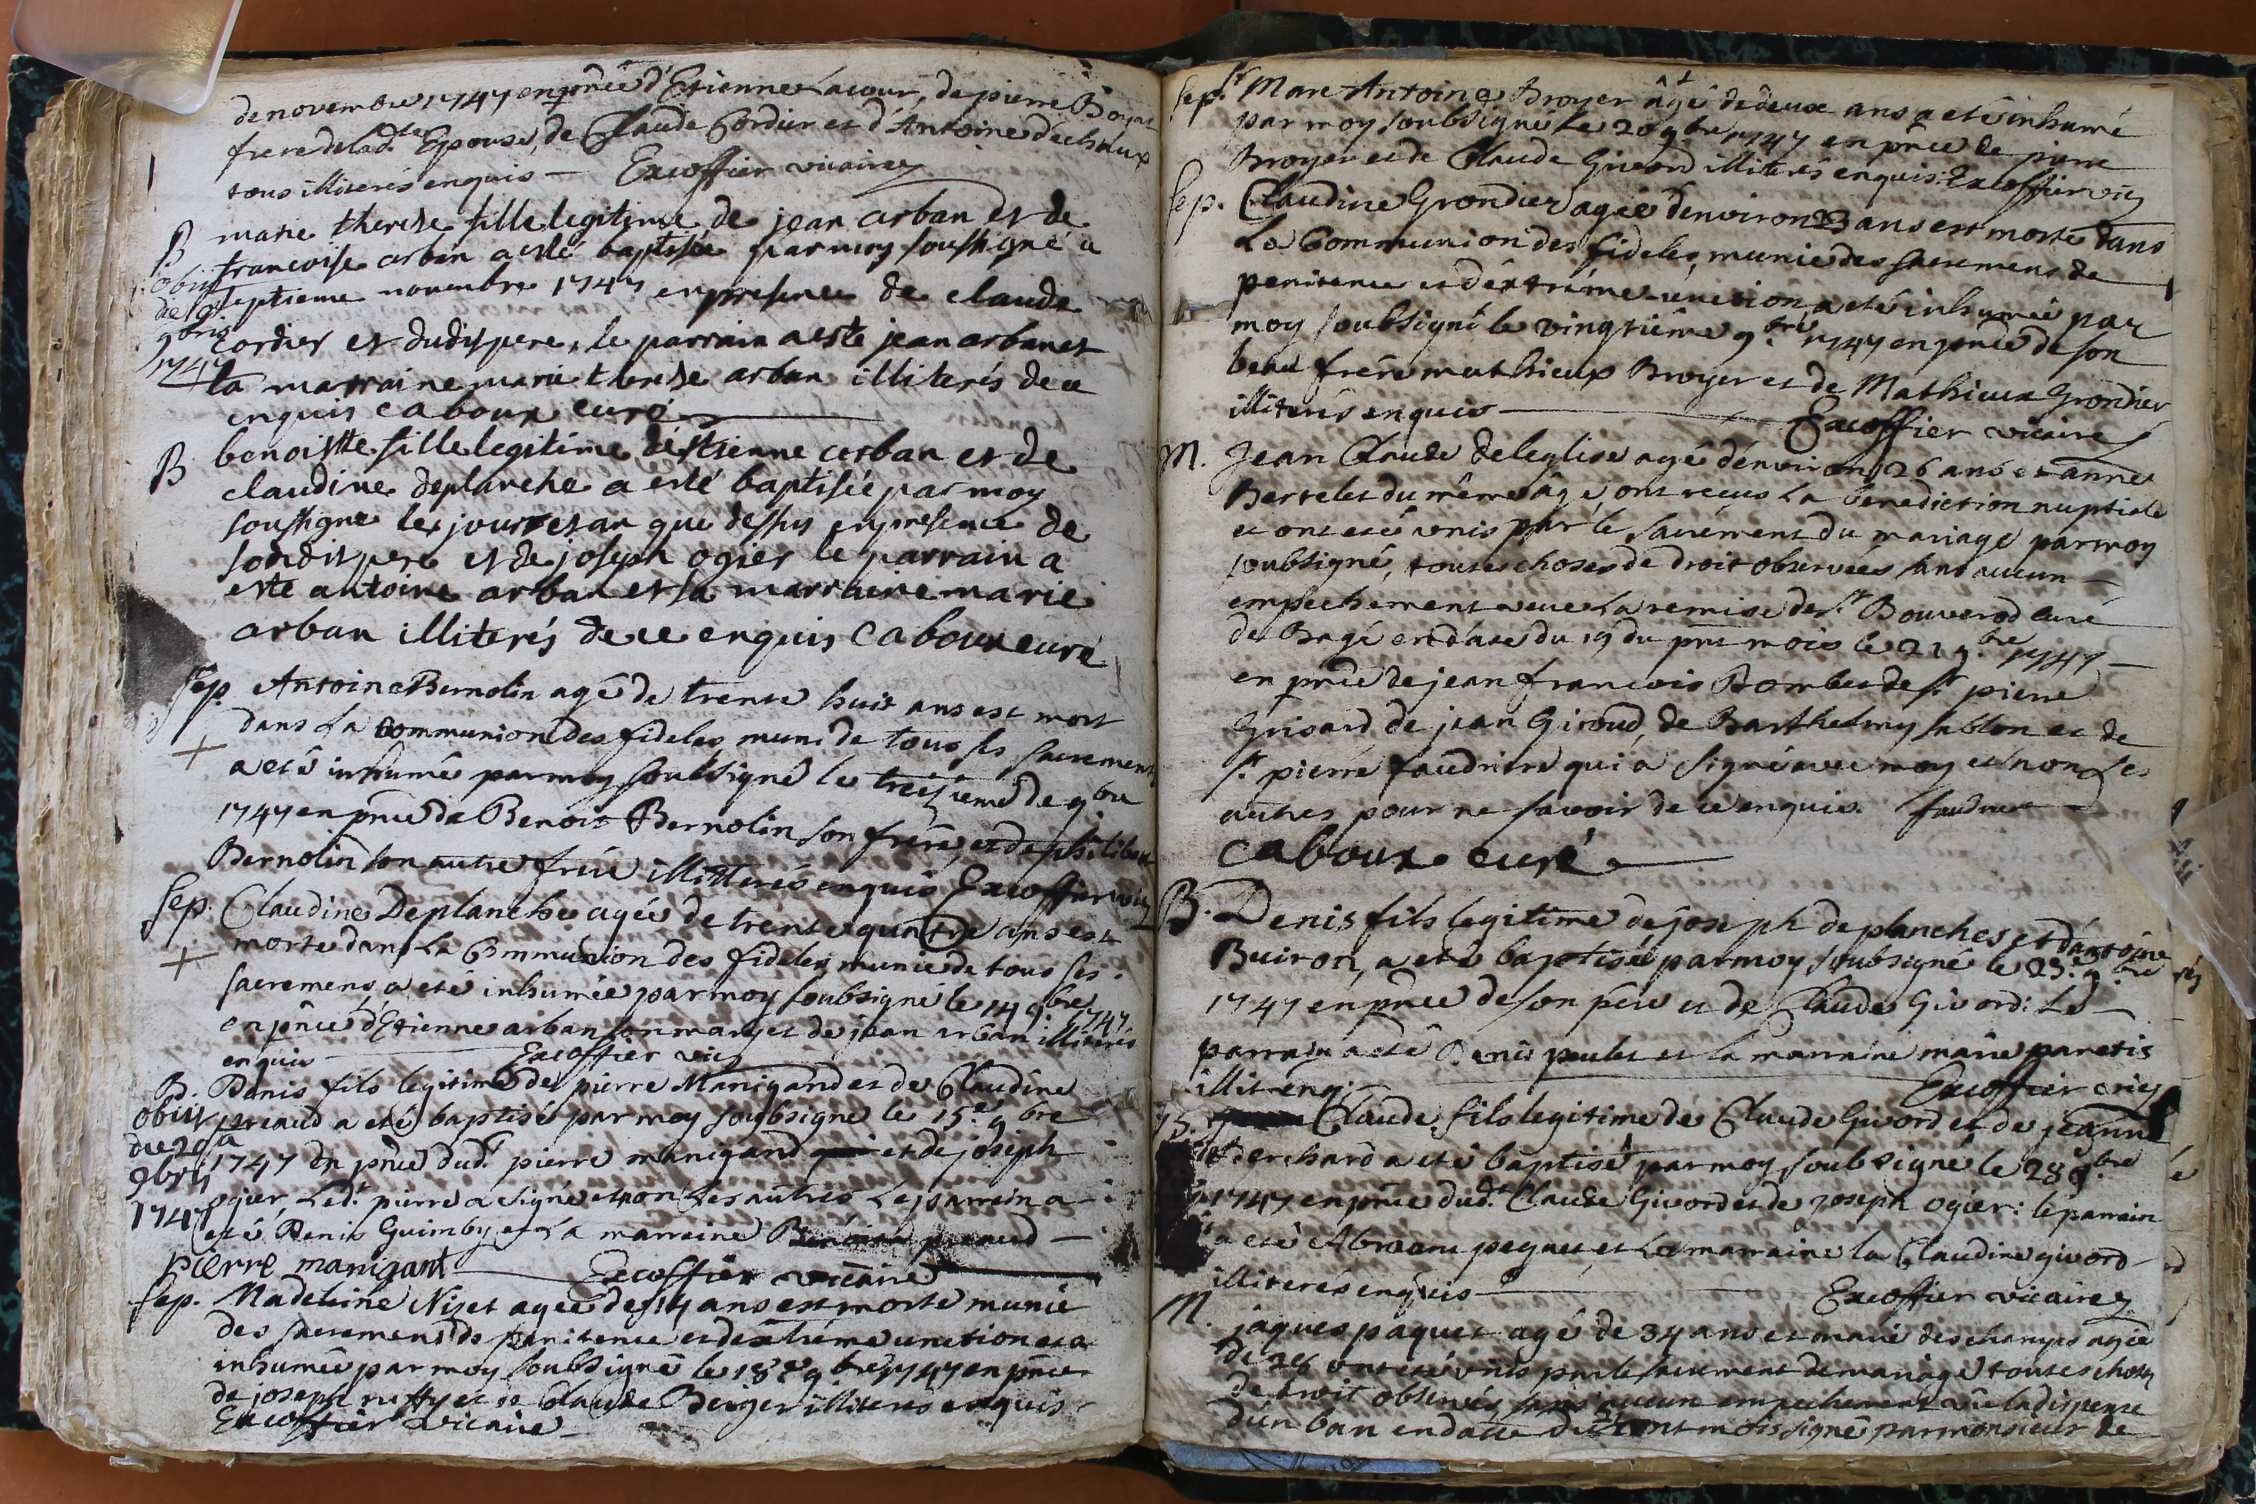 de novembre 1747 en pnce d'Etienne Lacour, de pierre Boyat
frere de lad.te Epouse, de Claude Cordier et d'Antoine dechaux
tous illiterés enquis — Excoffier vicaire
B marie therese fille legitime de jean arban et de
francoise arban a esté baptisée par moy soussigné ce
obiit die 9a 9bris 1747
septieme novembre 1747 en presence de claude
cordier et dudit pere, le parrain a esté jean arban et
la marraine marie therese arban illiterés de ce
enquis caboux curé
B benoistte fille legitime d'estienne arban et de
claudine deplanche a esté baptisée par moy
soussigne les jour et an que dessus en presence de
sondit pere et de joseph ogier le parrain a
esté antoine arban et la marraine marie
arban illiterés de ce enquis caboux curé
Sep. Antoine Bernolin agé de trente huit ans est mort
dans la Communion des fideles muni de tous ses sacremens
a eté inhumé par moy soubsigné le treizieme de 9bre
1747 en pnce de Benoit Bernolin son frere, et de philibert
Bernolin son autre frere illitterés enquis Excoffier vic
Sep. Claudine Deplanche agée de trente quatre ans est
morte dans la Communion des fideles munie de tous ses
sacremens, a eté inhumée par moy soubsigné le 14 9.bre 1747
en pnce d'Etienne arban son mary et de jean arban illiterés
enquis Excoffier vic
B. Denis fils legitime de pierre Manigand et de Claudine
obiit die 20a 9bris 1747
preaud a eté baptisé par moy soubsigné le 15.e 9bre
1747 en pnce dud.t pierre manigand et de joseph
ogier, Led.t pierre a signé et non les autres Le parrein a
eté Denis Guimby et La marreine preaud —
pierre manigant Excoffier vicaire
Sep. Madeleine Nizet agée de 14 ans est morte munie
des sacremens de penitence et d'extréme onction et a
inhumée par moy soubsigné le 18e 9bre 1747 en pnce
de joseph ruffy et de Claude Berger illiteres enquis
Excoffier vicaire
Sep.r Marc Antoine Broyer âgé de deux ans a eté inhumé
par moy soubsigné le 20 9bre 1747 en pnce de pierre
Broyer et de Claude Givord illiterés enquis Excoffier vic
Sep. Claudine Grondier agée d'environ 23 ans est morte dans
La Communion des fideles, munie des sacremens de
penitence et d'extréme-onction, a eté inhumée par
moy soubsigné le vingtiéme 9.bre 1747 en pnce de son
beau frere mathieux Broyer et de Mathieux Grondier
illiterés enquis — Excoffier vicaire
M. Jean Claude deleglise agé d'environ 26 ans et anne
Bertelet du même âge, ont reçus la benediction nuptiale
et ont eté unis par le sacrement du mariage par moy
soubsigné, toutes choses de droit observées sans aucun
empechement avec la remise de s.r Bouverod curé
de Bagé en date du 19 du pnt mois le 21 9.bre 1747 —
en pnce de jean francois Bomber de s.r pierre
Grisard de jean Giroud, de Barthelmy sablon et de
s.r pierre faudrire qui a signé avec moy et non les
autres pour ne savoir de ce enquis. faudrire
caboux curé
B. Denis fils legitime de joseph deplanches et d'antoine
Buiron, a eté baptisé par moy soubsigné le 23.e 9bre
1747 en pnce de son pere et de Claude Givord: Le
parrain a eté Denis peulet et la marraine marie paretis
illit enq. Excoffier vic
B. Claude, fils legitime de Claude Givord et de jeanne
derchard a eté baptisé par moy soubsigné le 28 9bre
1747 en pnce dud.t Claude Givord et de joseph ogier: le parrain
a eté Abraam peguet et La marraine la Claudine givord
illiterés enquis — Excoffier vicaire
M. jaques paquet agé de 34 ans et marie deschamps agée
de 26 ont eté unis par le sacrement de mariage toutes choses
de droit observés sans aucun empechement vûe la dispense
d'un ban en datte mois signé par monsieur de